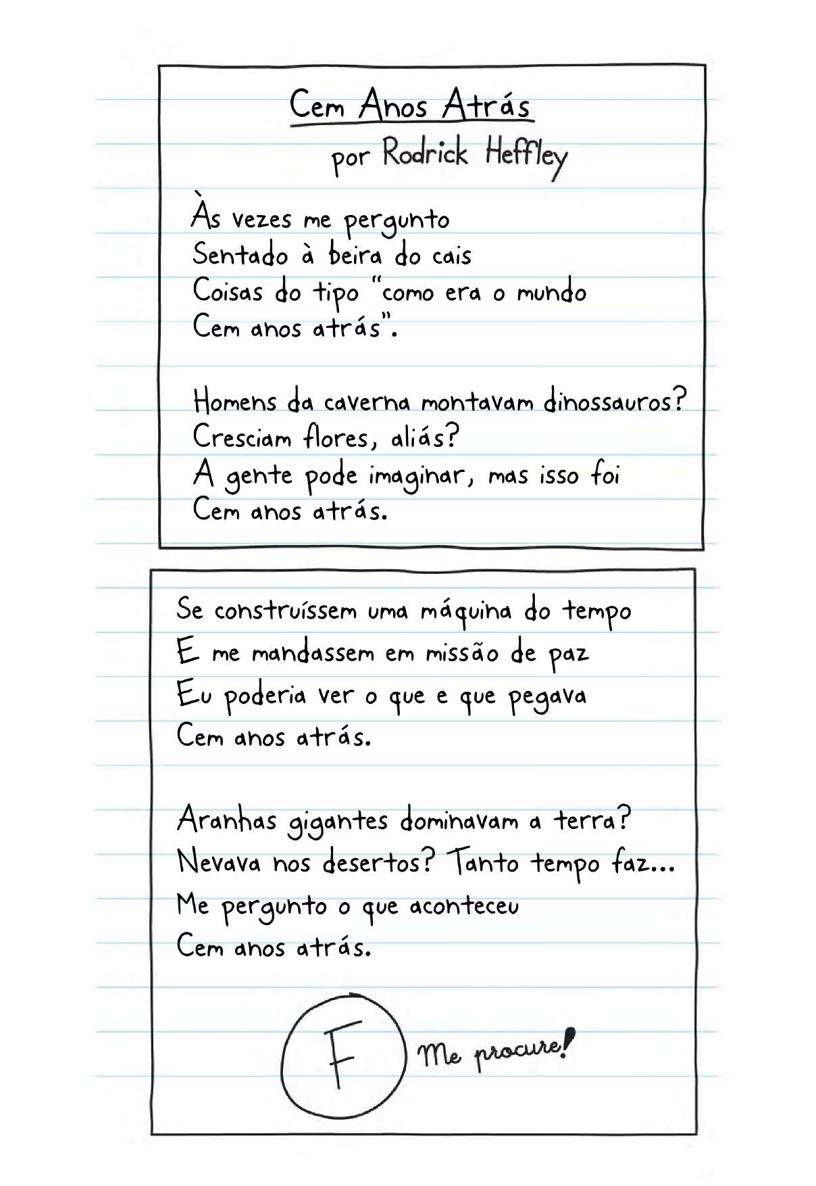 Cem Anos Atrás
por Rodrick Heffley
Às vezes me pergunto
Sentado à beira do cais
Coisas do tipo “como era o mundo
Cem anos atrás”.
Homens da caverna montavam dinossauros?
Cresciam flores, aliás?
A gente pode imaginar, mas isso foi
Cem anos atrás.
Se construíssem uma máquina do tempo
E me mandassem em missão de paz
Eu poderia ver o que e que pegava
Cem anos atrás.
Aranhas gigantes dominavam a terra?
Nevava nos desertos? Tanto tempo faz...
Me pergunto o que aconteceu
Cem anos atrás.
F Me procure!